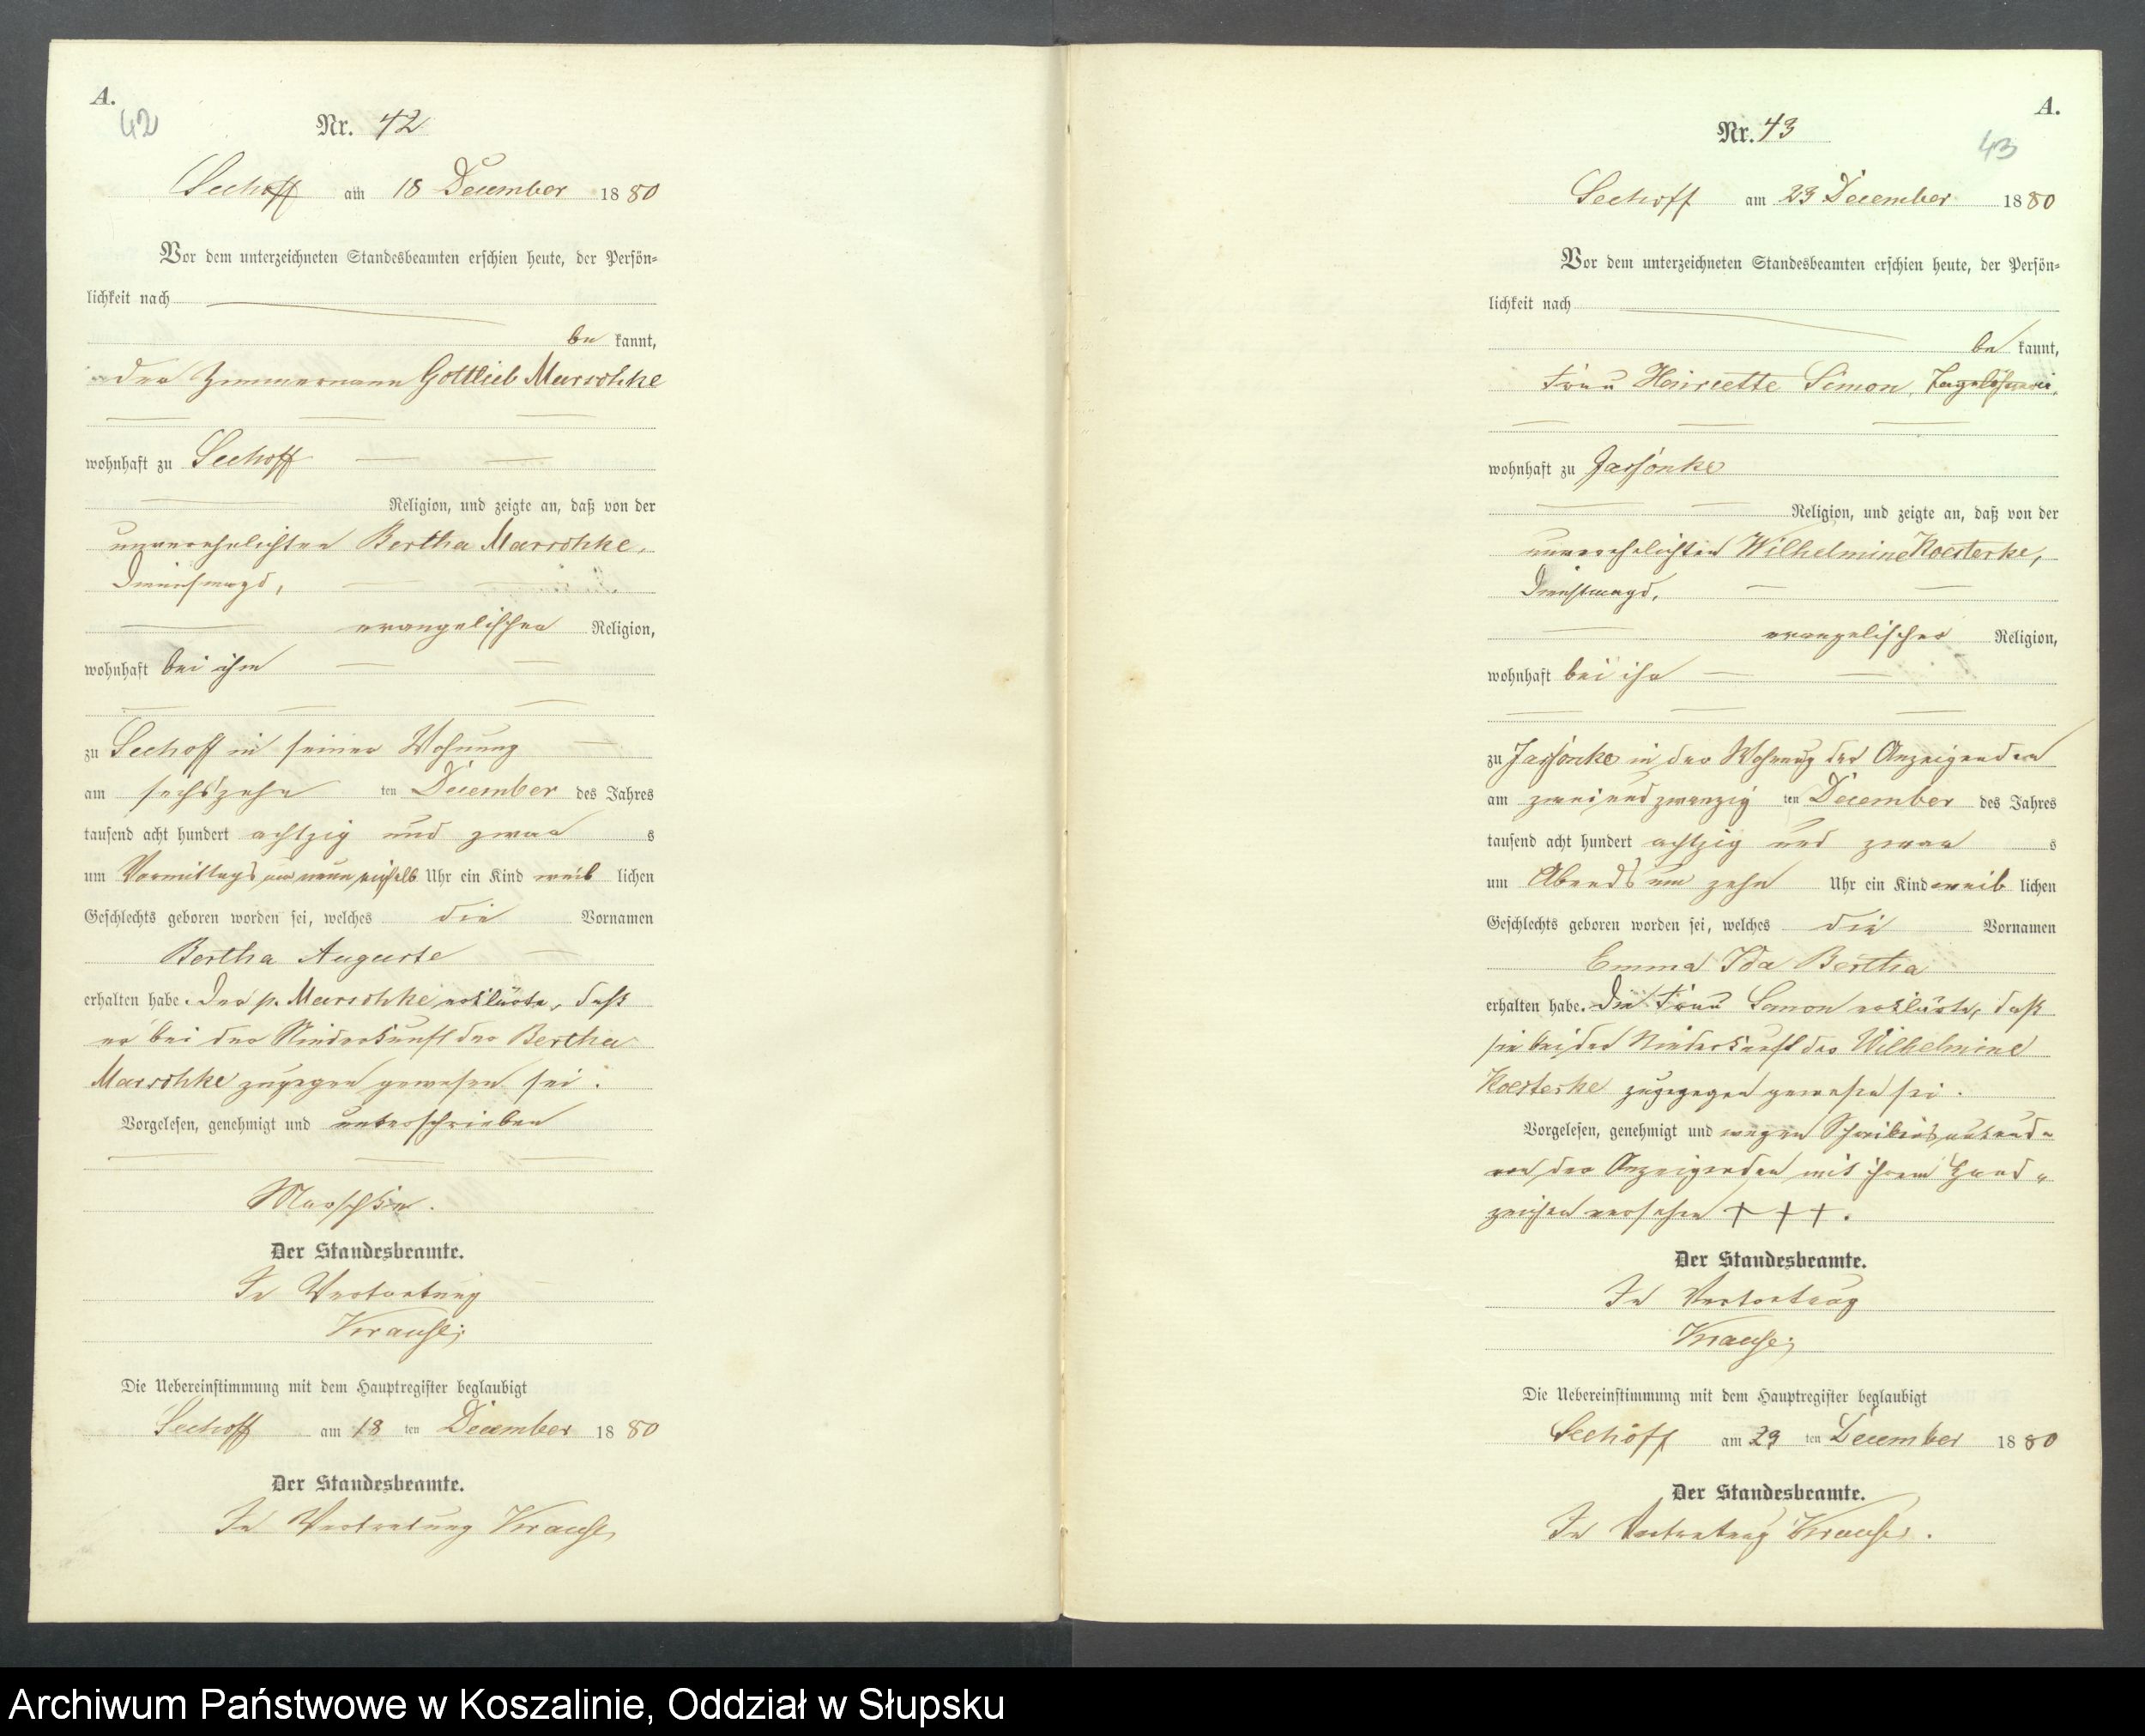 A.
42
Nr. 42
Seehoff am 18 December 1880
Vor dem unterzeichneten Standesbeamten erschien heute, der Persön=
lichkeit nach
be kannt,
der Zimmermann Gottlieb Marschke
wohnhaft zu Seehoff
Religion, und zeigte an, daß von der
unverehelichten Bertha Marschke,
Dienstmagd,
evangelischer Religion,
wohnhaft bei ihm
zu Seehoff in seiner Wohnung
am sechszehn ten December des Jahres
tausend acht hundert achtzig und zwar s
um Vormittags um neun Uhr ein Kind weib lichen
Geschlechts geboren worden sei, welches die Vornamen
Bertha Auguste
erhalten habe. Der p. Marschke erklärte, daß
er bei der Niederkunft der Bertha
Marschke zugegen gewesen sei.
Vorgelesen, genehmigt und unterschrieben
Marschke.
Der Standesbeamte.
In Vertretung
Krause
Die Uebereinstimmung mit dem Hauptregister beglaubigt
Seehoff am 18 ten December 1880
Der Standesbeamte.
In Vertretung Krause
A.
43
Nr. 43
Seehoff am 23 December 1880
Vor dem unterzeichneten Standesbeamten erschien heute, der Persön=
lichkeit nach
be kannt,
Frau Henriette Simon,
wohnhaft zu Jassonke
Religion, und zeigte an, daß von der
unverehelichten Wilhelmine Koesterke,
Dienstmagd,
evangelischer Religion,
wohnhaft bei ihr
zu Jassonke in der Wohnung der Anzeigenden
am zweiundzwanzig ten December des Jahres
tausend acht hundert achtzig und zwar s
um Abends um zehn Uhr ein Kind weib lichen
Geschlechts geboren worden sei, welches die Vornamen
Emma Ida Bertha
erhalten habe. Die Frau Simon erklärte, daß
sie bei der Niederkunft der Wilhelmine
Koesterke zugegen gewesen sei.
Vorgelesen, genehmigt und wegen Schreibensunkunde
von der Anzeigenden mit ihrem Hand=
zeichen versehen + + +.
Der Standesbeamte.
In Vertretung
Krause
Die Uebereinstimmung mit dem Hauptregister beglaubigt
Seehoff am 23 ten December 1880
Der Standesbeamte.
In Vertretung Krause.
Archiwum Państwowe w Koszalinie, Oddział w Słupsku